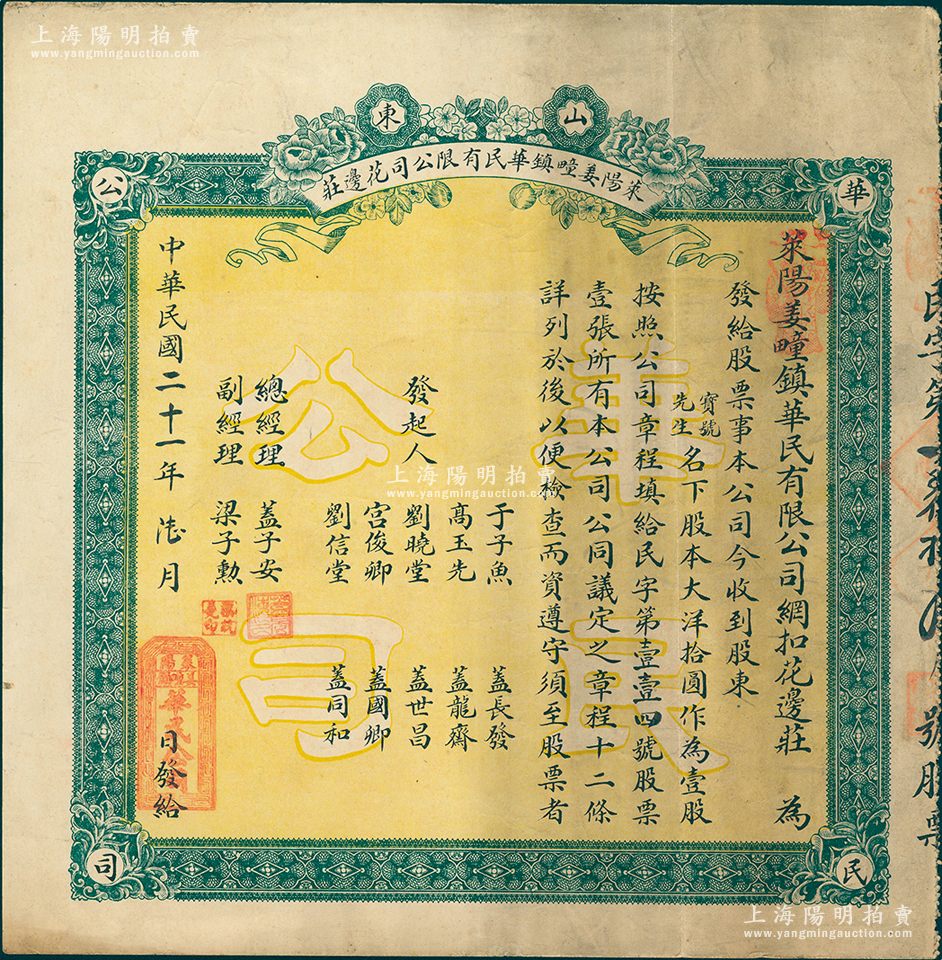 上海陽明拍賣
www.yangmingauction.com
上海陽明拍賣
www.yangmingauction.com
山東
萊陽姜疃鎮華民有限公司花邊莊
華
公
民
司
萊陽姜疃鎮華民有限公司網扣花邊莊 為
發給股票事本公司今收到股東
寶號
先生
名下股本大洋拾圓作為壹股
按照公司章程填給民字第壹壹四號股票
壹張所有本公司公同議定之章程十二條
詳列於後以便檢查而資遵守須至股票者
發起人
于子魚 蓋長發
高玉先 蓋龍齋
劉曉堂 蓋世昌
宮俊卿 蓋國卿
劉信堂 蓋同和
總經理 蓋子安
副經理 梁子勲
中華民國二十一年 陸月 日發給
華民公司
民字第
號股票
上海陽明拍賣
www.yangmingauction.com
上海陽明拍賣
www.yangmingauction.com